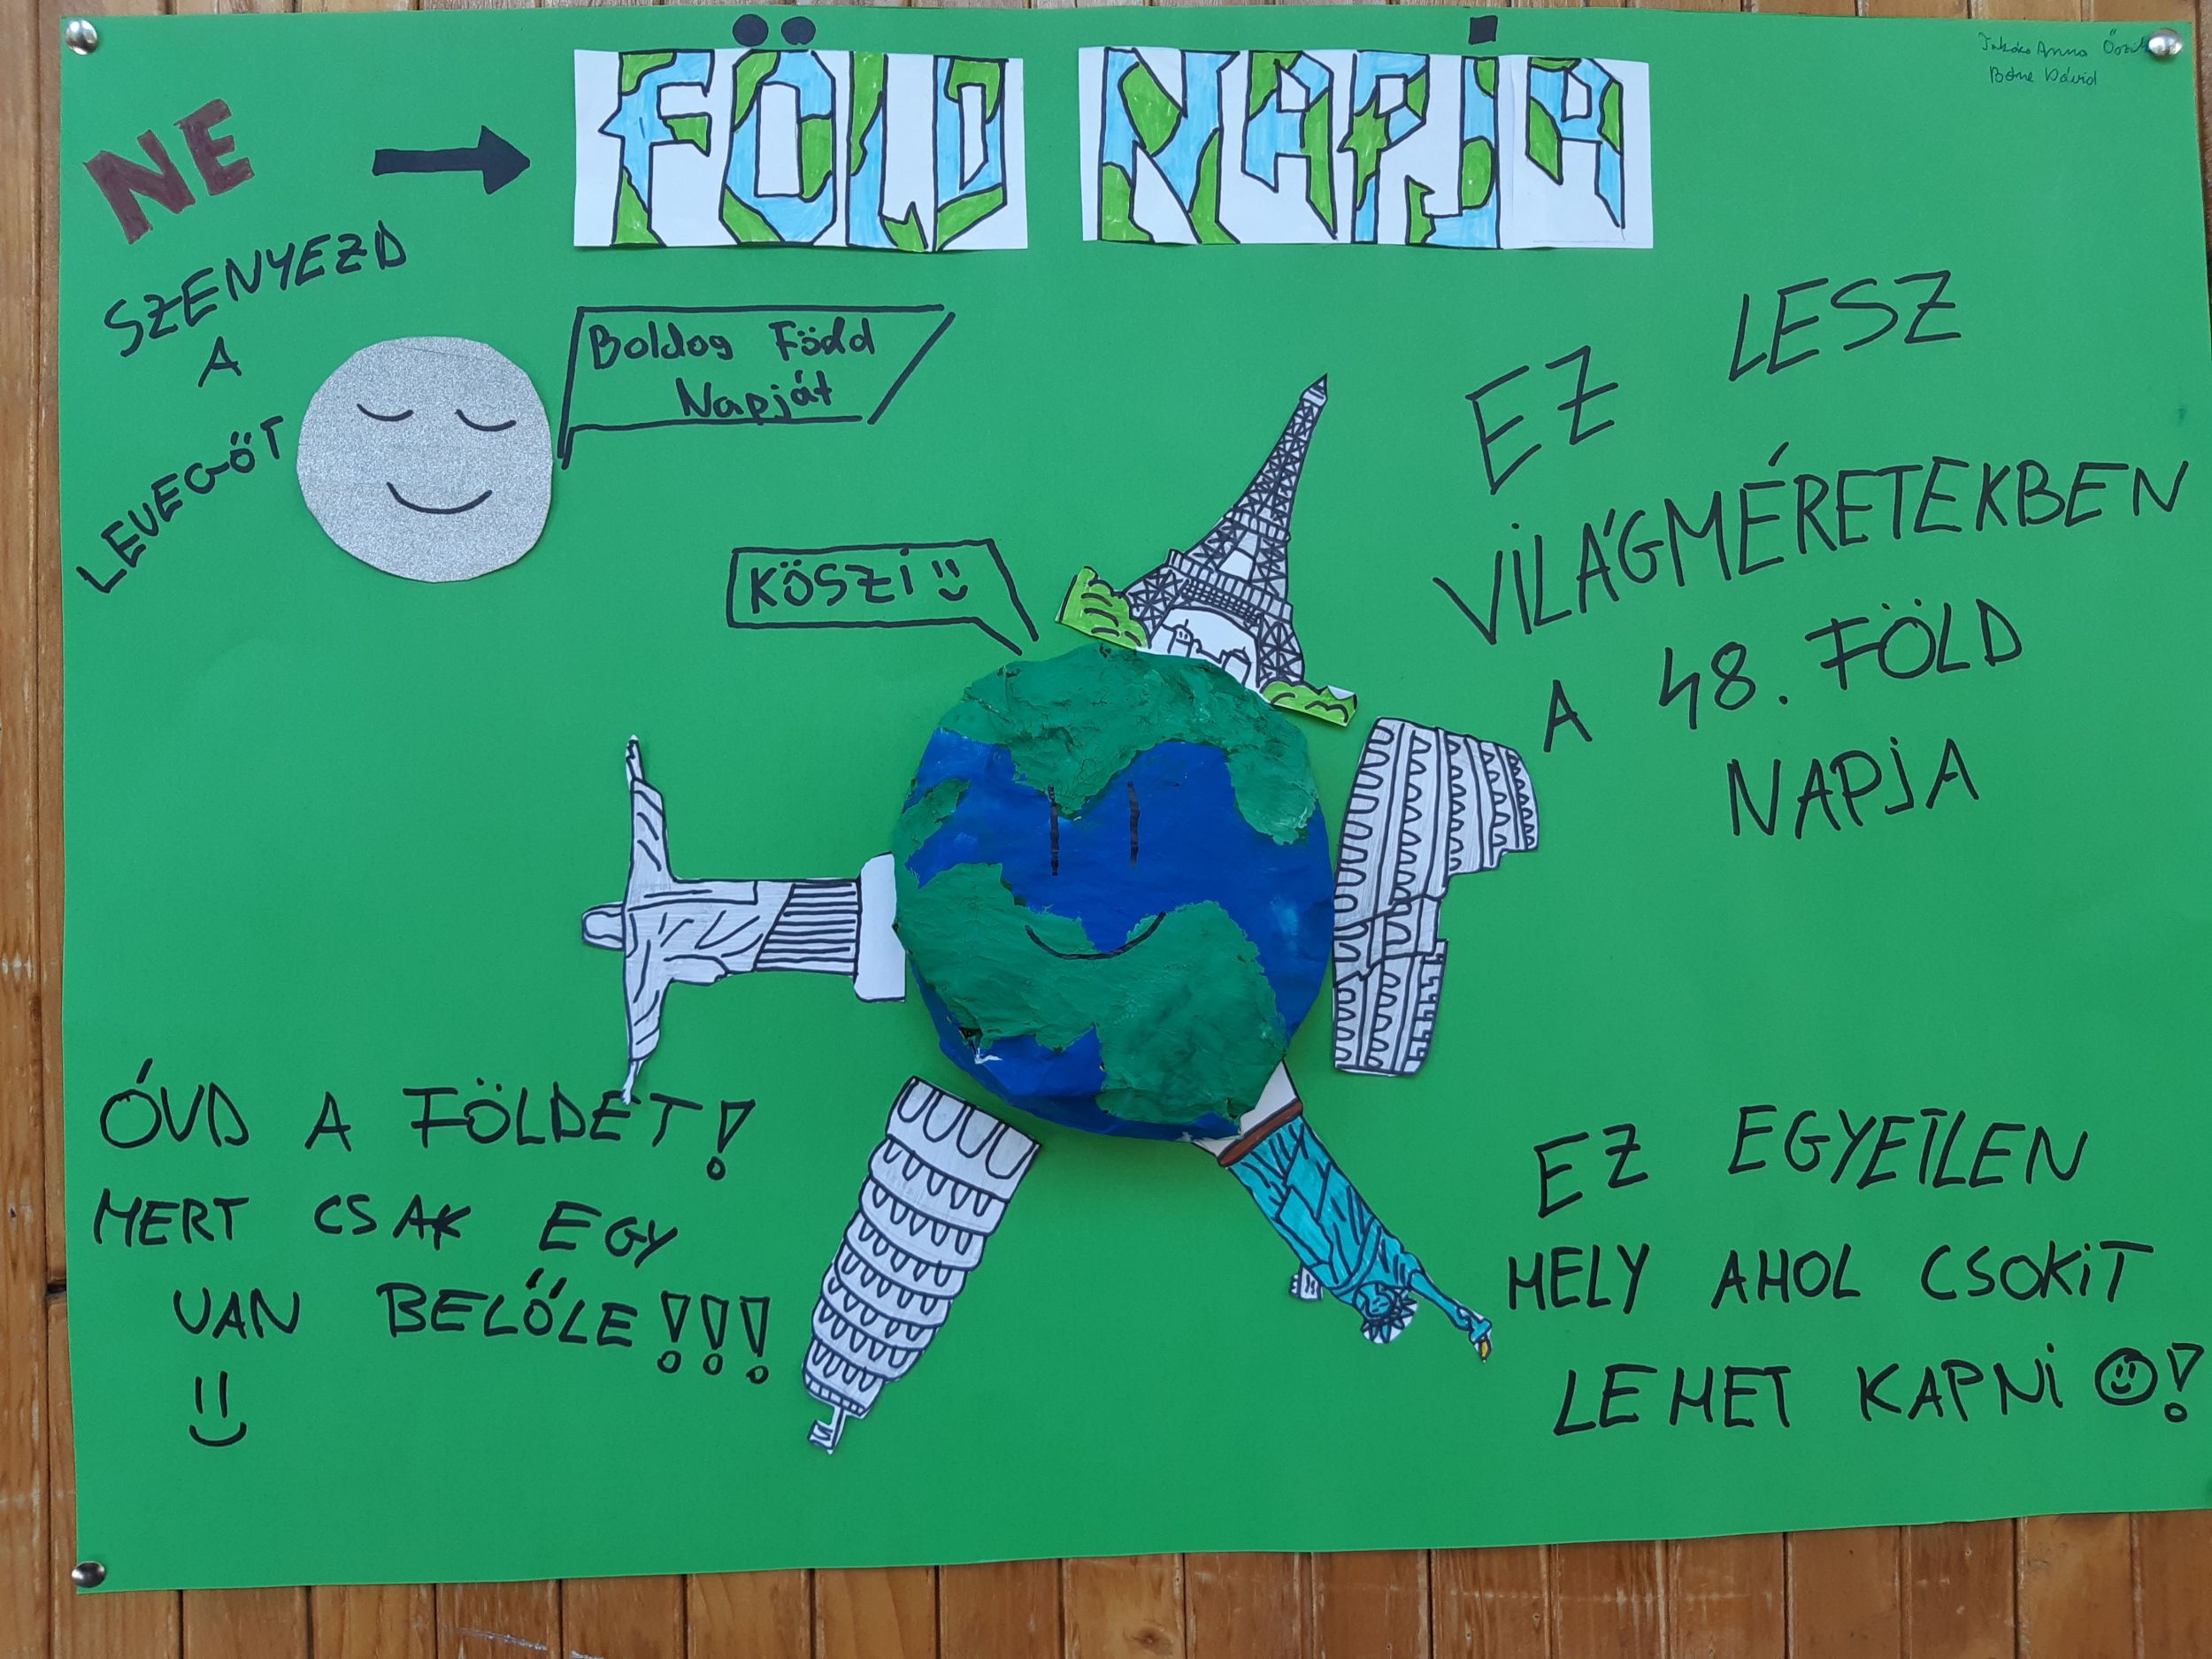 FÖLD NAPJA
NE
SZENYEZD
A
LEVEGÖT
Boldog Föld
Napját
KÖSZI
EZ LESZ
VILÁGMÉRETEKBEN
A 48. FÖLD
NAPJA
ÓVD A FÖLDET!
MERT CSAK EGY
VAN BELŐLE!!!
EZ EGYETLEN
HELY AHOL CSOKIT
LEHET KAPNI !
Anna
Dávid